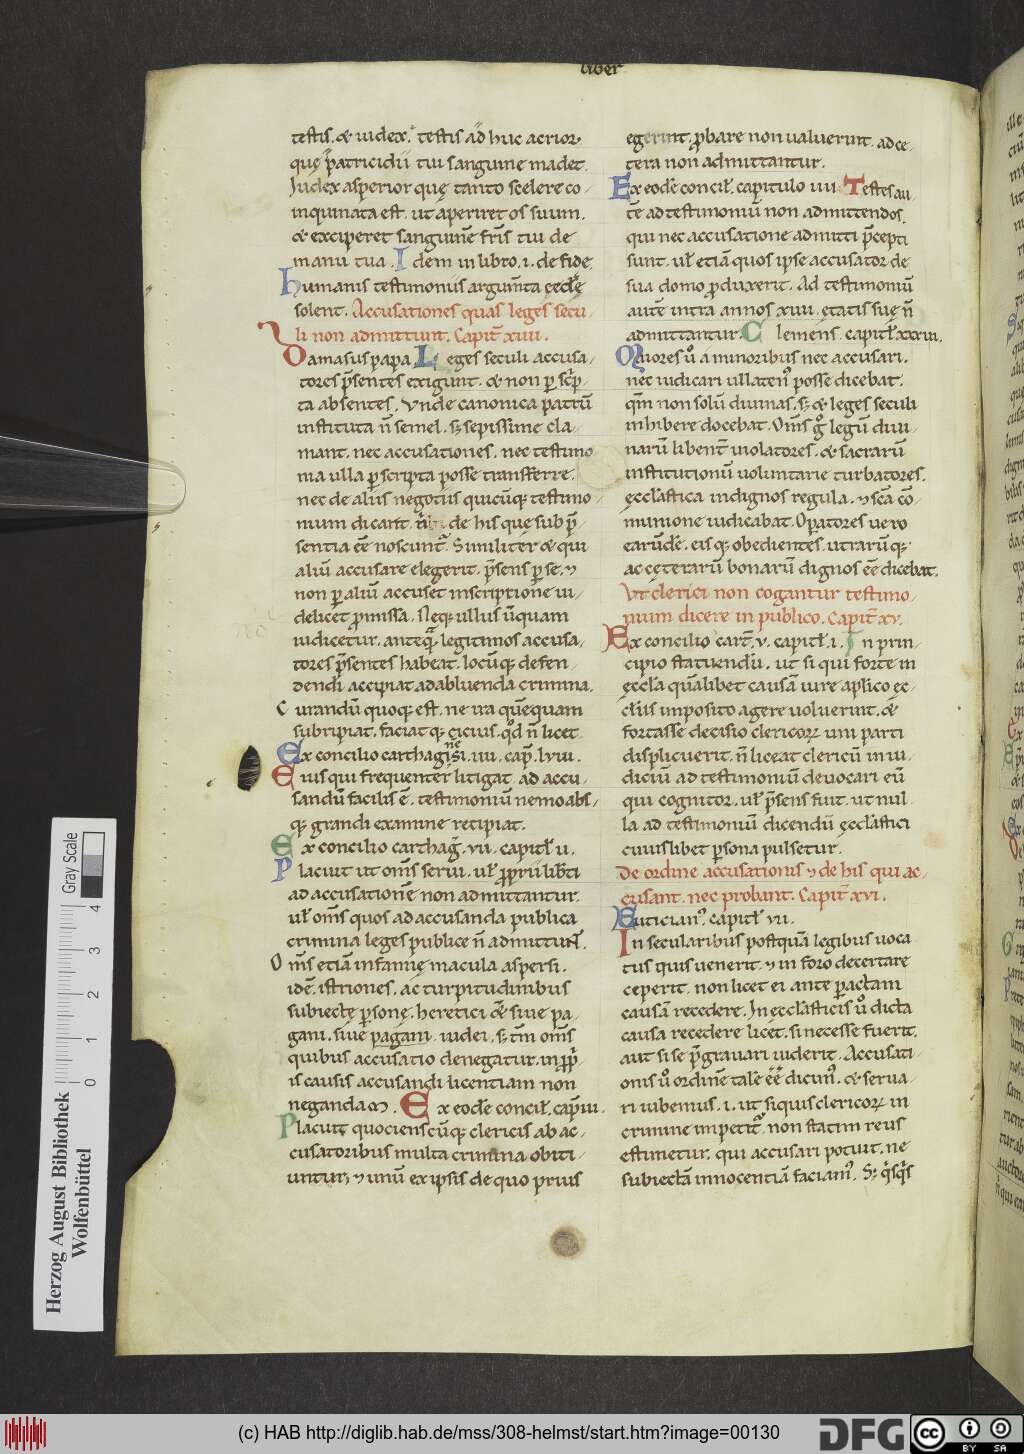 liber
testis. & iudex. testis ad huc acrior
quę patricidii tui sanguine madet.
Iudex asperior quę tanto scelere co-
inquinata est. ut aperiret os suum.
& exciperet sanguinē fr̄is tui de
manu tua. Idem in libro .i. de fide.
humanis testimoniis argum̄ta ęcclę
solent. Accusationes quas leges secu-
li non admittunt. Capit̄ xiiii.
Damasus papa Leges seculi accusa-
tores p̄sentes exigunt. & non p̱ sc̄p-
ta absentes. Vnde canonica patrū
instituta n̄ semel. sꝫ sepissime cla-
mant. nec accusationes. nec testimo
nia ulla p̱ scripta posse transferre.
nec de aliis negotiis quicūqꝫ testimo-
nium dicant. de his quę sub p̄-
sentia eē̄ noscunt᷑. Similiter & qui
aliū accusare elegerit. p̄sens p̱ se. ⁊
non p̱ aliū accuset inscriptione ui-
delicet p̱missa. Neqꝫ ullus ūquam
iudicetur. anteq̄ legitimos accusa-
tores p̄sentes habeat. locūqꝫ defen-
dendi accipiat ad abluenda crimina.
Curandū quoqꝫ est. ne ira quēquam
subripiat. faciatqꝫ citius. qd̄ n̄ licet.
Ex concilio carthaginēsi .iiii. cap̄. lviii.
Eius qui frequenter litigat. ad accu-
sandū facilis ē. testimoniū nemo abs-
qꝫ grandi examine recipiat.
Ex concilio carthaḡ. vii. capitł ii.
Placuit ut om̄s serui. uł p̱prii lib̄ti
ad accusationē non admittantur.
uł om̄s quos ad accusanda publica
crimina leges publice n̄ admittunt̄.
Om̄s etiā infamię macula aspersi.
idē. istriones. ac turpitudinibus
subiectę p̱sonę. heretici &̄ siue pa-
gani. siue pagani. iudei. sꝫ tn̄ om̄s
quibus accusatio denegatur. in p̱p̱-
is causis accusandi licentiam non
neganda m̄. Ex eodē concił. cap̄ iii.
Placuit quocienscūqꝫ clericis ab ac-
cusatoribus multa crimina obici-
untur. ⁊ unū ex ipsis de quo prius
egerint. p̱bare non ualuerint. ad ce-
tera non admittantur.
Ex eodē concił. capitulo iiii. Testes au-
tē ad testimoniū non admittendos.
qui nec accusatione admitti p̄cepti
sunt. uł etiā quos ipse accusator de
sua domo p̱duxerit. Ad testimoniū
autē intra annos xiiii. ętatis suę n̄
admittantur. Clemens. capitł xxxiii.
Maiores ū a minoribus nec accusari.
nec iudicari ullaten᷒ posse dicebat.
qm̄ non solū diuinas. sꝫ & leges seculi
inhibere docebat. Om̄s g̊ legū diui-
narū libent̄ uiolatores. & sacrarū
institutionū uoluntarie turbatores.
ęcclāstica indignos regula. ⁊ sc̄a cō-
munione iudicabat. Op̱atores uero
earūdē. eisqꝫ obedientes. utrarūqꝫ.
ac ceterarū bonarū dignos eē̄ dicebat.
Vt clerici non cogantur testimo-
nium dicere in publico. Capit̄ xv.
Ex concilio cart̄. v. capitł .i. In prin-
cipio statuendū. ut si qui forte in
ęccła quālibet causā iure aplīco ęc-
cłiis imposito agere uoluerint. &
fortasse decisio clericoꝝ uni parti
displicuerit. n̄ liceat clericū in iu-
diciū ad testimoniū deuocari eū
qui cognitor. uł p̄sens fuit. ut nul-
la ad testimoniū dicendū ęcclāstici
cuiuslibet p̱sona pulsetur.
De ordine accusationis ⁊ de his qui ac-
cusant. nec probant. Capit̄ xvi.
Euticiān᷒. capitł vii.
In secularibus postquā legibus uoca
tus quis uenerit. ⁊ in foro decertare
ceperit. non licet ei ante p̱actam
causā recedere. In ecclāsticis ū dicta
causa recedere licet. si necesse fuerit.
aut si se p̄grauari uiderit. Accusati-
onis ū ordinē tale ēē̄ dicim᷒. & serua-
ri iubemus .i. ut si quis clericoꝝ in
crimine impetit᷑. non statim reus
estimetur. qui accusari potuit. ne
subiectā innocentiā faciam᷒. Sꝫ q̄sq̄s
Herzog August Bibliothek
Wolfenbüttel
Gray Scale
0 1 2 3 4
(c) HAB http://diglib.hab.de/mss/308-helmst/start.htm?image=00130
DFG
cc BY SA